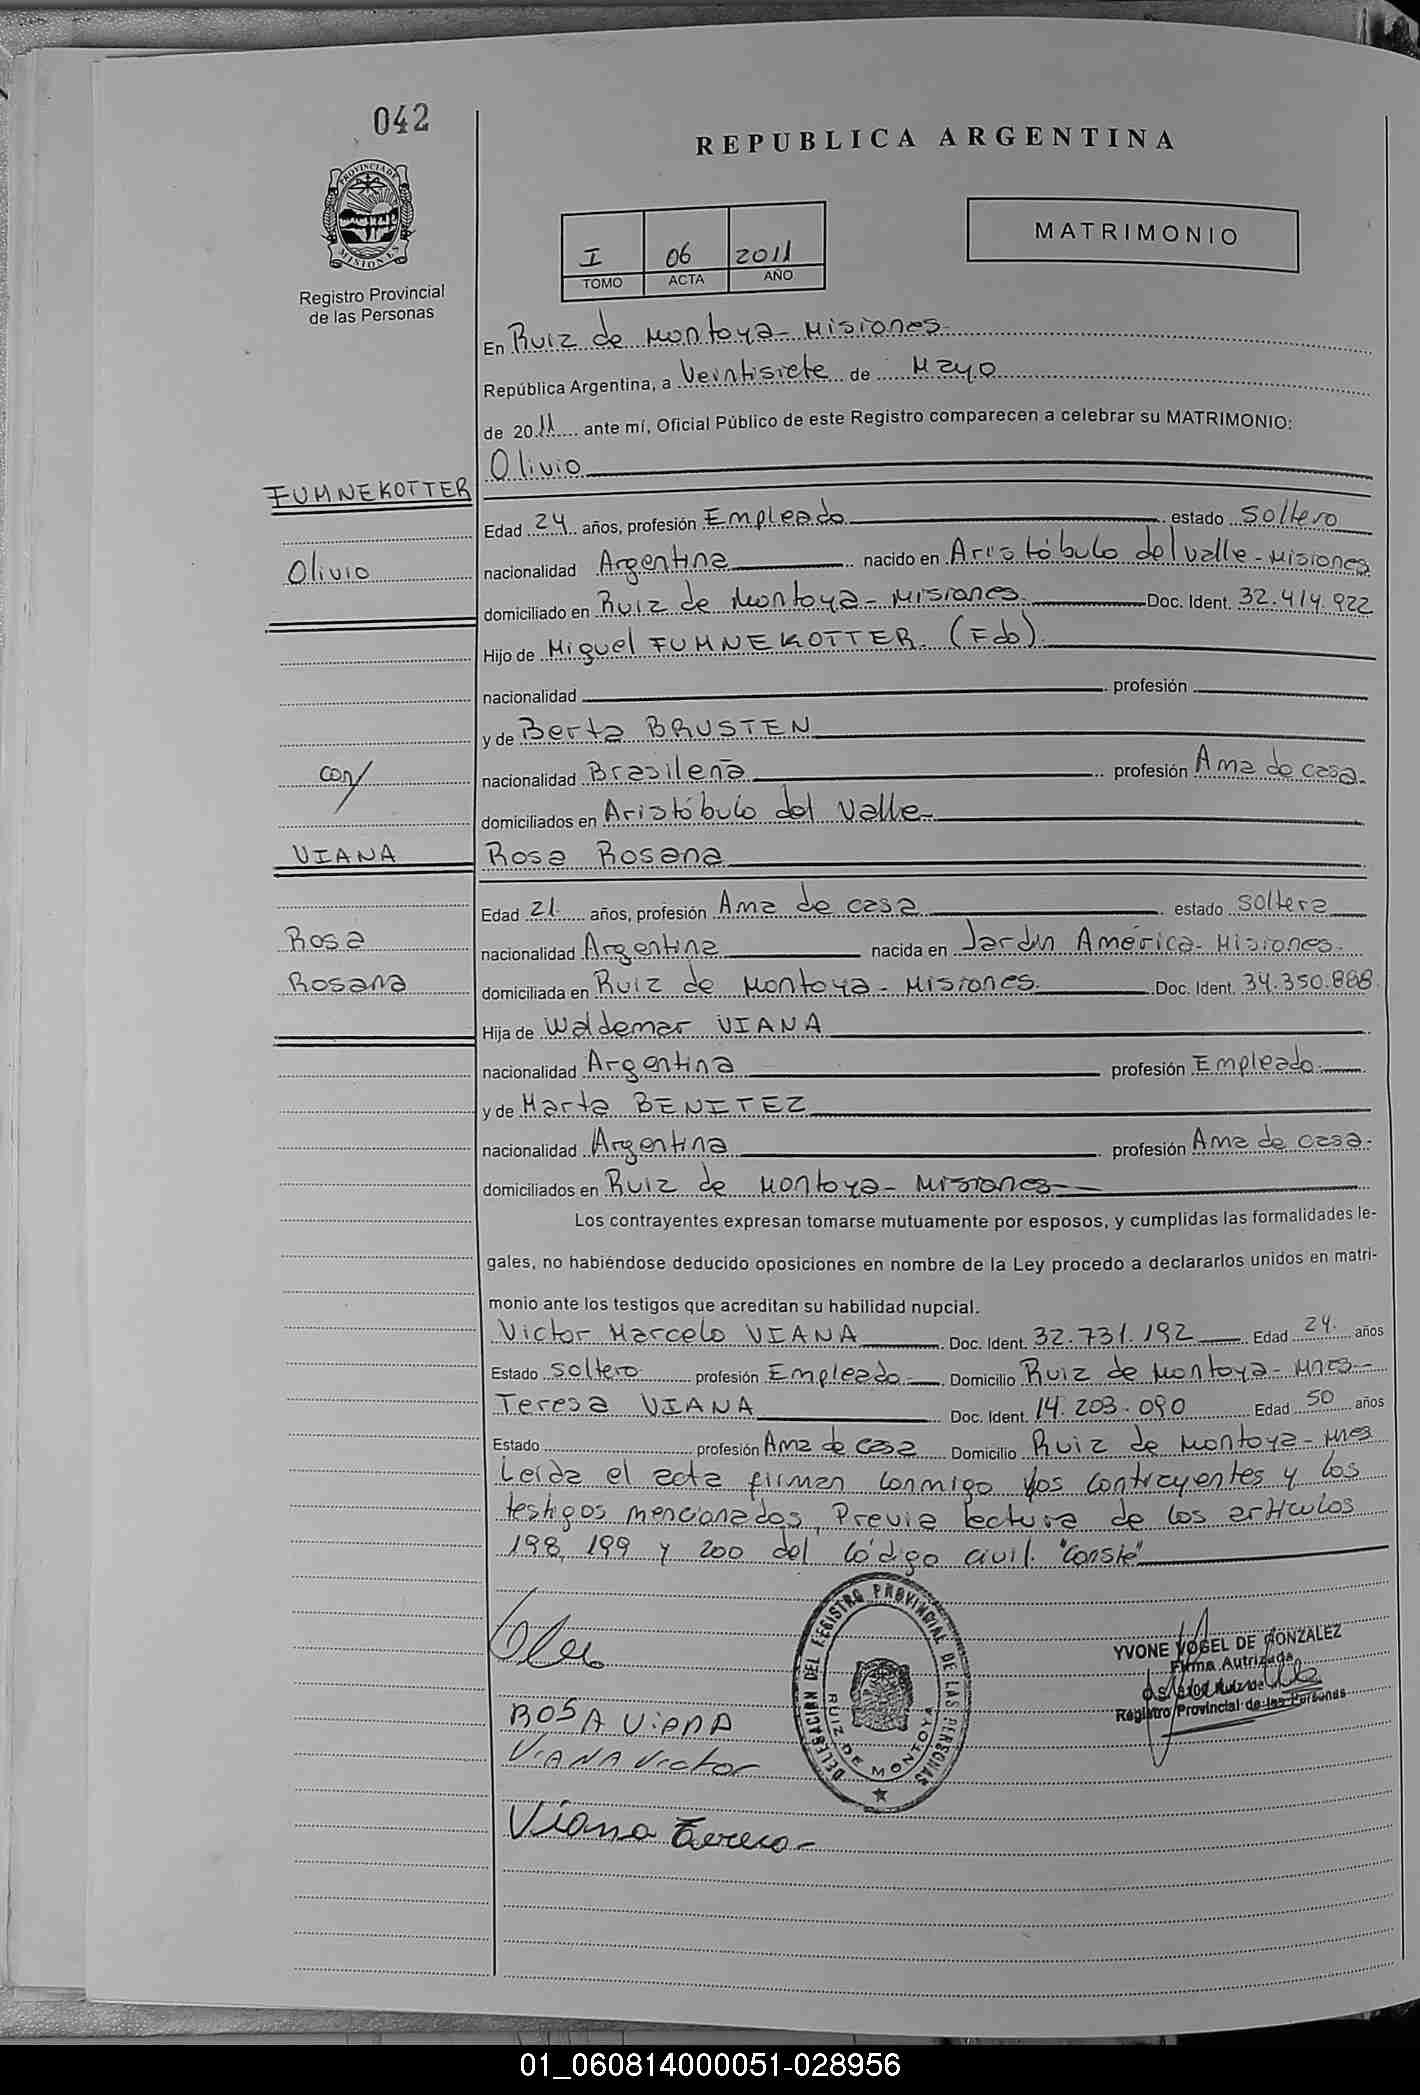 042
REPUBLICA ARGENTINA
PROVINCIA DE MISIONES
Registro Provincial
de las Personas
I 06 2011
TOMO ACTA AÑO
MATRIMONIO
En Ruiz de Montoya - Misiones
República Argentina, a Veintisiete de Mayo
de 2011 ante mí, Oficial Público de este Registro comparecen a celebrar su MATRIMONIO:
FUMNEKOTTER Olivio
Edad 24 años, profesión Empleado estado soltero
Olivio nacionalidad Argentina nacido en Aristóbulo del valle - Misiones
domiciliado en Ruiz de Montoya - Misiones. Doc. Ident. 32.414.922
Hijo de Miguel FUMNEKOTTER. (Fdo).
nacionalidad profesión
y de Berta BRUSTEN
con/ nacionalidad Brasileña profesión Ama de casa.
domiciliados en Aristóbulo del Valle-
VIANA Rosa Rosana
Edad 21 años, profesión Ama de casa estado soltera
Rosa nacionalidad Argentina nacida en Jardín América - Misiones.
Rosana domiciliada en Ruiz de Montoya - Misiones. Doc. Ident. 34.350.888
Hija de Waldemar VIANA
nacionalidad Argentina profesión Empleado
y de Marta BENITEZ
nacionalidad Argentina profesión Ama de casa.
domiciliados en Ruiz de Montoya - Misiones
Los contrayentes expresan tomarse mutuamente por esposos, y cumplidas las formalidades le-
gales, no habiéndose deducido oposiciones en nombre de la Ley procedo a declararlos unidos en matri-
monio ante los testigos que acreditan su habilidad nupcial.
Victor Marcelo VIANA Doc. Ident. 32.731.192 Edad 24. años
Estado soltero profesión Empleado Domicilio Ruiz de Montoya - Mnes-
Teresa VIANA Doc. Ident. 14.203.090 Edad 50 años
Estado profesión Ama de casa Domicilio Ruiz de Montoya - Mnes
Leída el acta firman conmigo los contrayentes y los
testigos mencionados, Previa lectura de los artículos
198, 199 y 200 del Código civil. "Conste"
DELEGACION DEL REGISTRO PROVINCIAL DE LAS PERSONAS
RUIZ DE MONTOYA
YVONE VOGEL DE GONZALEZ
Firma Autrizada
Registro Provincial de las Personas
ROSA ViANA
ViANA Victor
Viana Teresa-
01_060814000051-028956